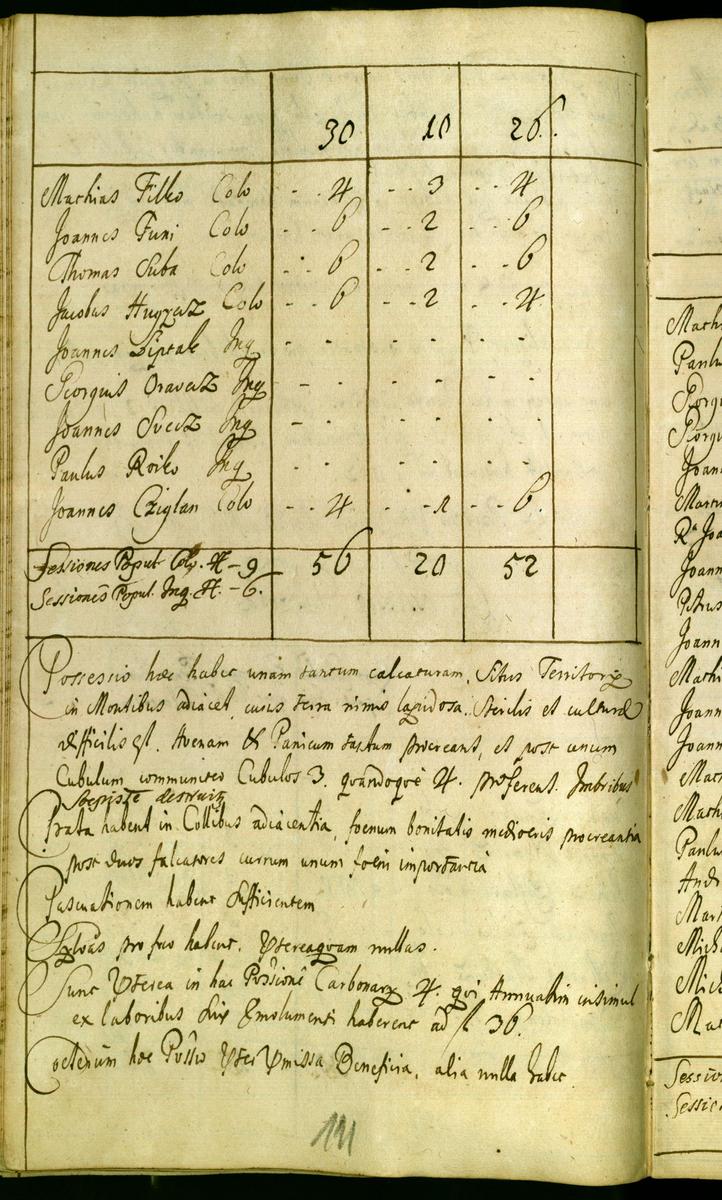 30 10 26.
Mathias Filko Colo - - 4 - - 3 - - 4
Joannes Funi Colo - - 6 - - 2 - - 6
Thomas Suba Colo - - 6 - - 2 - - 6
Jacobus Hugyecz Colo - - 6 - - 2 - - 4
Joannes Liptak Inq - - - - - -
Georgius Oravecz Inq - - - - - -
Joannes Svecz Inq - - - - - -
Paulus Roiko Inq - - - - - -
Joannes Cziglan Colo - - 4 - - 1 - - 6.
Sessiones Popul. Colo. # - 9 56 20 52
Sessiones Popul. Inq. #. - 6.
Possessio hæc habet unam tantum calcaturam, Situs Territorij
in Montibus adiacet, cuius terra nimis lapidosa. Sterilis et culturæ
difficilis est. Avenam & Panicum tantum procreant, et post unum
Cubulum communiter Cubulos 3. quandoque 4. proferent. Imbribus
destruitur
Prata habent in Collibus adiacentia, foenum bonitatis mediocris procreantia
post duos falcatores currum unum foeni importantia
Pascuationem habent Sufficientem
Sylvas pro foco habent. Prætereaquam nullas.
Sunt Præterea in hac Possione Carbonarij 4. qui Annuatim insimul
ex laboribus Suis Emolumenti haberent ad f 36.
Cæterum hæc Possio Præter Præmissa Beneficia, alia nulla habet
141
Math
Paulu
Georgi
Georgi
Joann
Marti
Joa
Joann
Petrus
Joann
Mathi
Joann
Joann
Mat
Math
Paulu
And
Mart
Mich
Mich
Mat
Sessio
Sessio